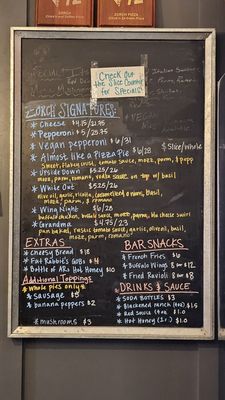 ZORCH PIZZA
ZORCH PIZZA
Check out
the Slice Counter
for Specials!
ZORCH SIGNATURES
$ Slice/whole
* Cheese $4.75/21.75
* Pepperoni $5/23.75
* Vegan pepperoni $6/31
* Almost like a Pizza Pie $6/28
Sweet, flakey crust, tomato sauce, moza, parm, & pepp
* Upside Down $5.25/26
moza, parm, romano, vodka sauce on top w/ basil
* White Out $5.25/26
olive oil, garlic, ricotta, caramelized onions, basil,
moza, parm, & romano
* Wing Night $6/28
buffalo chicken, buffalo sauce, moza, parm, blue cheese swirl
* Grandma $4.75/23
pan baked, rustic tomato sauce, garlic, olive oil, basil,
moza, parm, romano
EXTRAS
* Cheesy Bread $18
* Fat Rabbit's GGBs $4
* Bottle of AR's Hot Honey $10
Additional Toppings
* whole pies only *
* Sausage $3
* banana peppers $2
* mushrooms $3
BAR SNACKS
* French Fries $6
* Buffalo Wings 8 for $12
* Fried Ravioli 8 for $8
DRINKS & SAUCE
* SODA BOTTLES $3
* Blackened ranch (4oz) $1.5
* Red Sauce (4oz) $1.0
* Hot Honey (2) $1.0